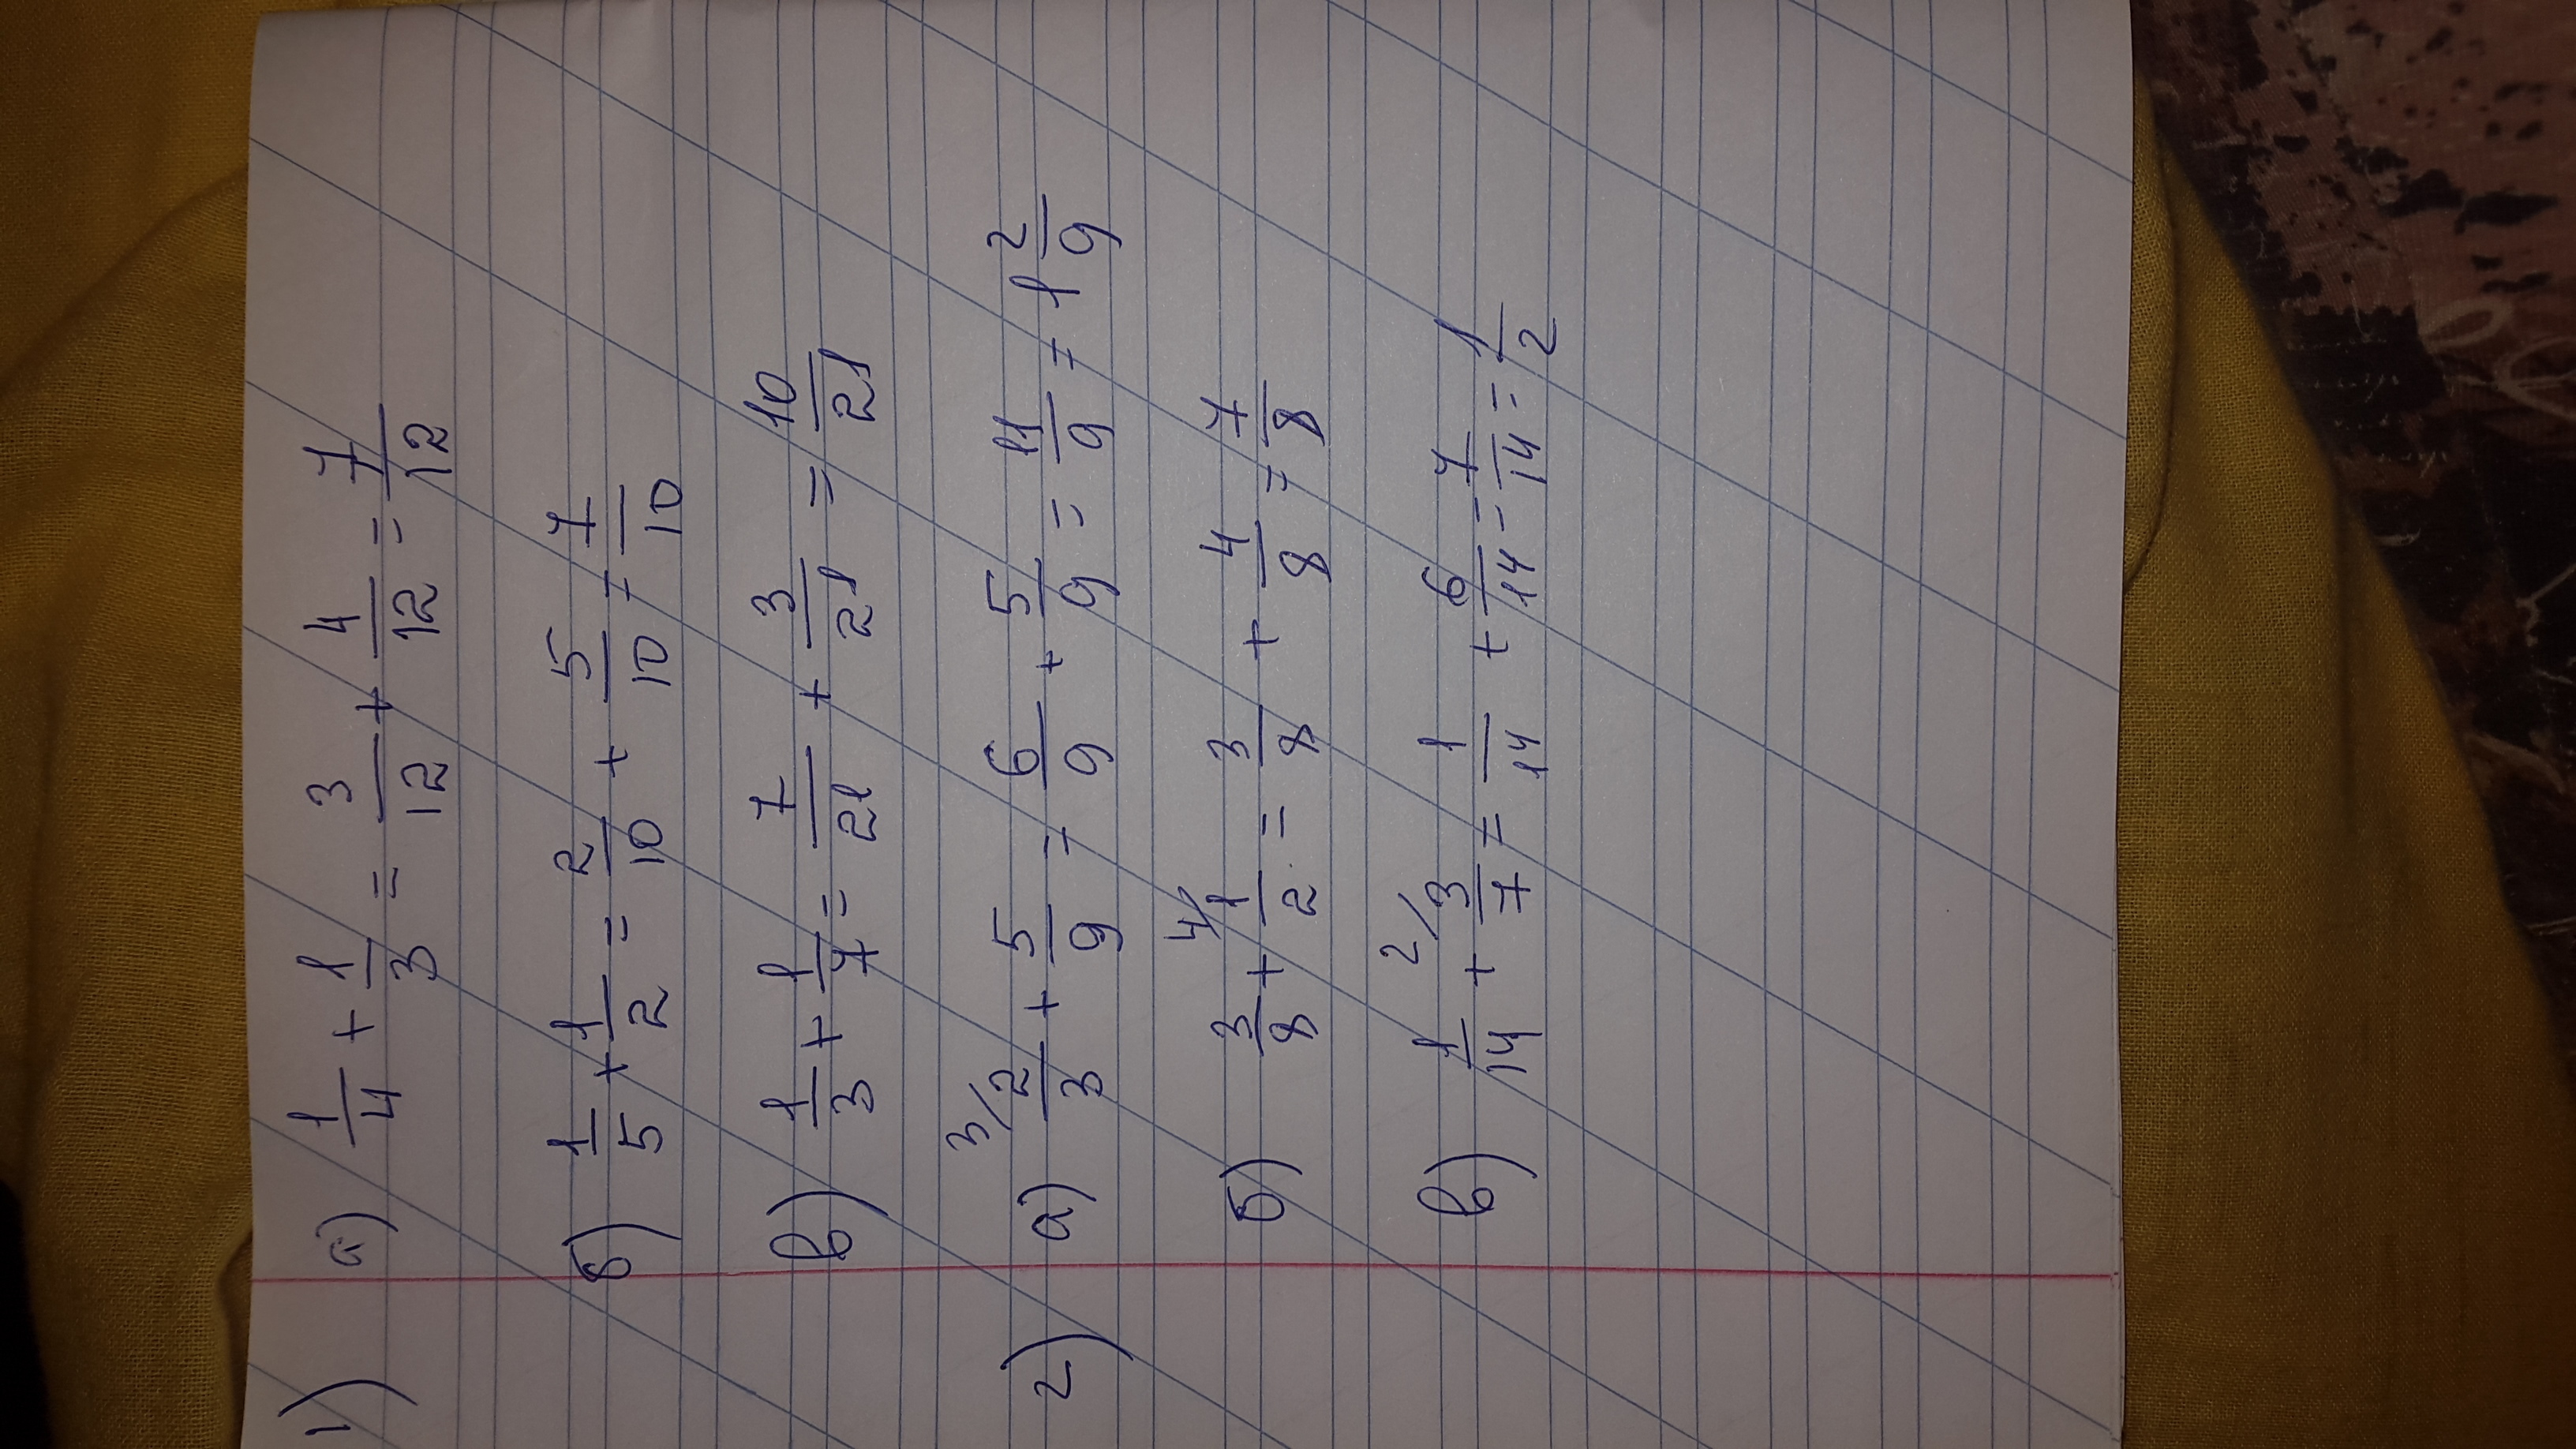 1) а) 1/4 + 1/3 = 3/12 + 4/12 = 7/12
б) 1/5 + 1/2 = 2/10 + 5/10 = 7/10
в) 1/3 + 1/7 = 7/21 + 3/21 = 10/21
2) а) 3/ 2/3 + 5/9 = 6/9 + 5/9 = 11/9 = 1 2/9
б) 3/8 + 4/ 1/2 = 3/8 + 4/8 = 7/8
в) 1/14 + 2/ 3/7 = 1/14 + 6/14 = 7/14 = 1/2